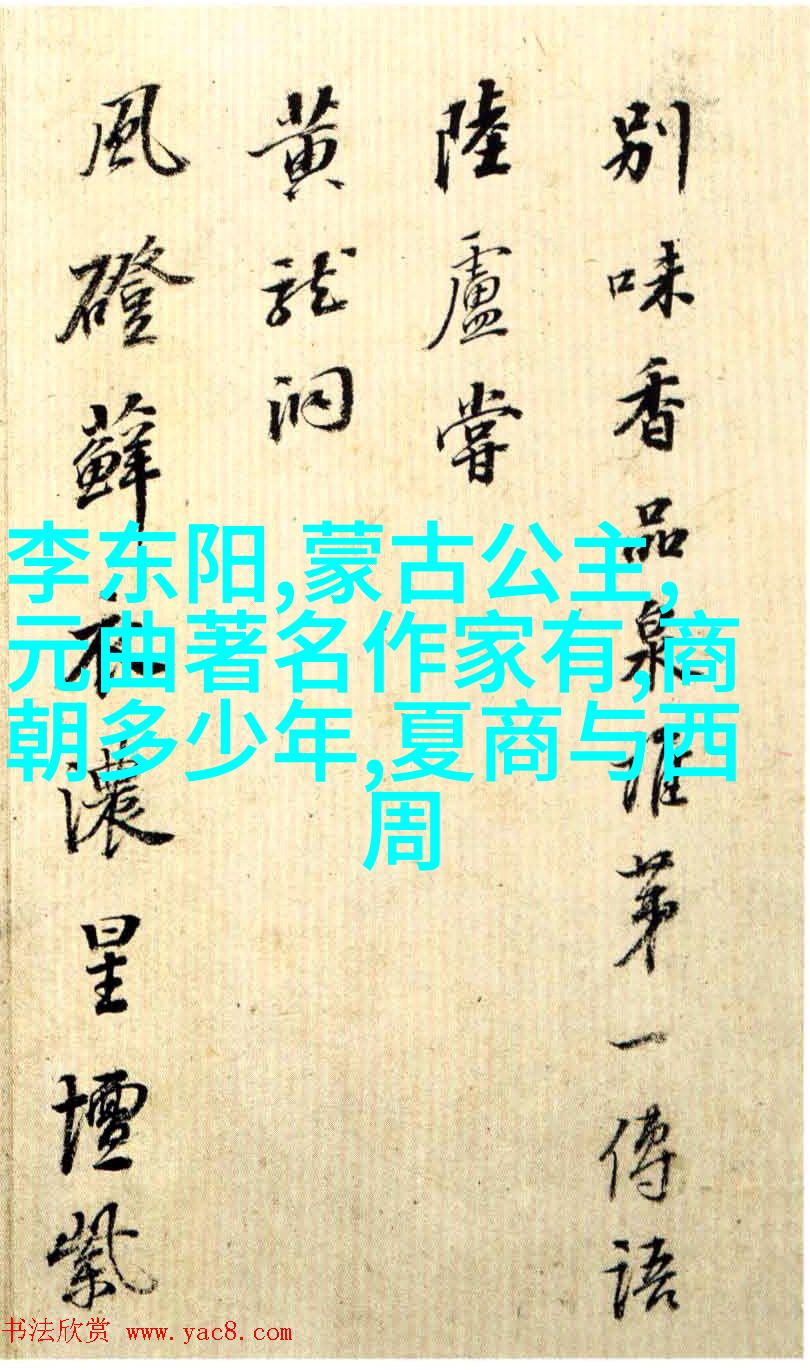 别味香品泉誰第一傳語
陸盧嘗
黄龍洞
風磴蘚衣濃星壇紫
李东阳,蒙古公主,
元曲著名作家有,商
朝多少年,夏商与西
周
书法欣赏 www.yac8.com